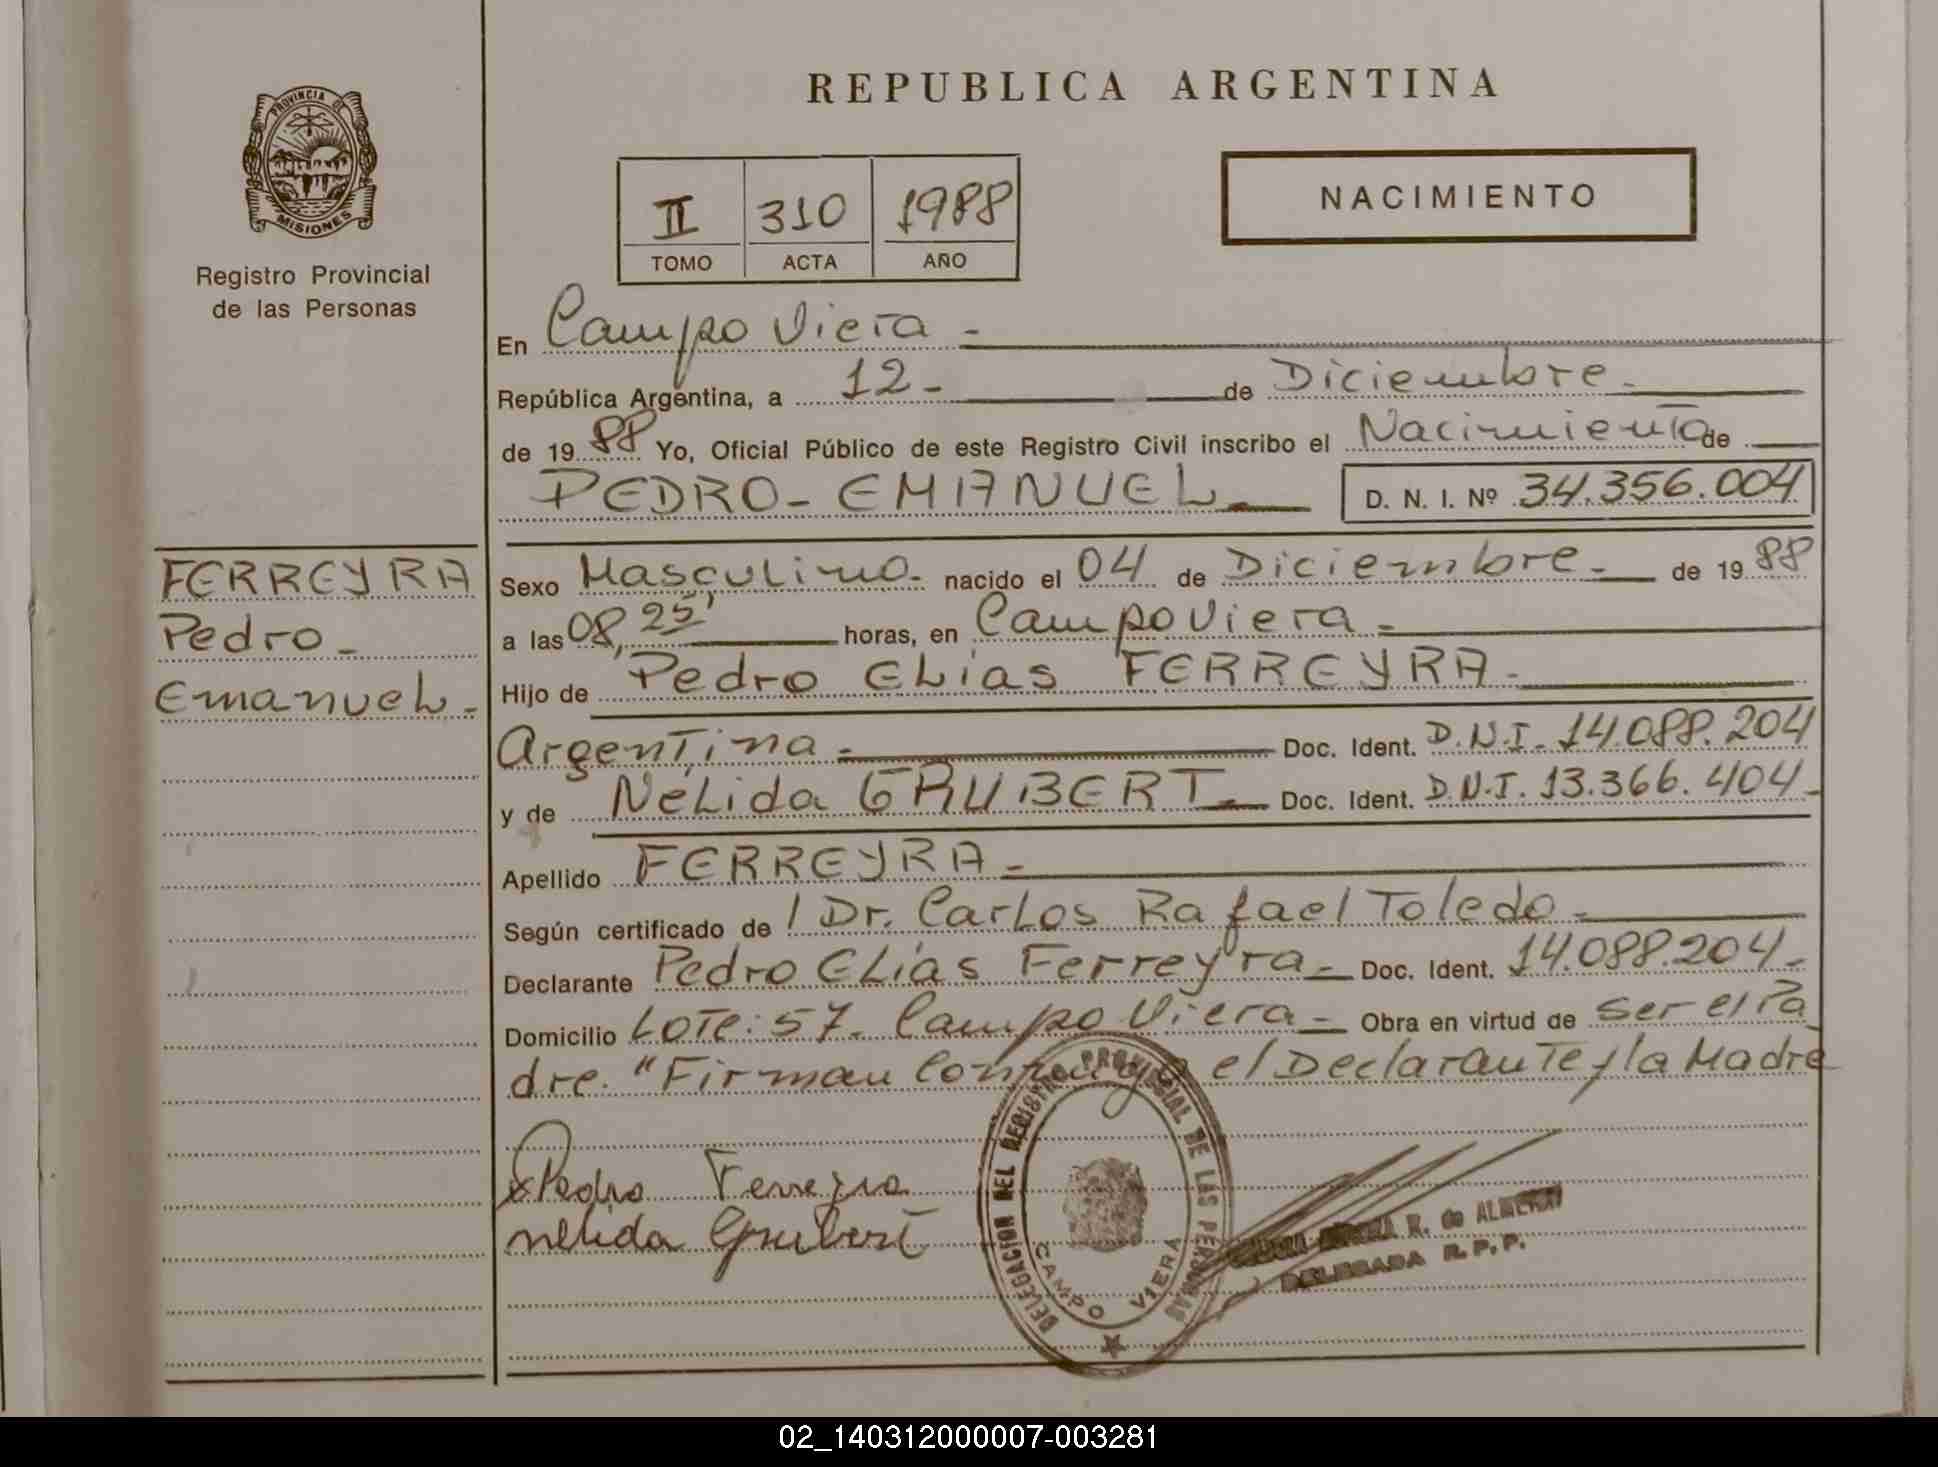 REPUBLICA ARGENTINA
PROVINCIA DE
MISIONES
Registro Provincial
de las Personas
II 310 1988
TOMO ACTA AÑO
NACIMIENTO
En Campo Viera -
República Argentina, a 12 - de Diciembre -
de 1988 Yo, Oficial Público de este Registro Civil inscribo el Nacimiento de
PEDRO - EMANUEL - D. N. I. Nº 34.356.004
FERREYRA
Pedro -
Emanuel -
Sexo Masculino - nacido el 04 de Diciembre - de 1988
a las 08,25' horas, en Campo Viera -
Hijo de Pedro Elias FERREYRA -
Argentina - Doc. Ident. D.N.I. 14.088.204
y de Nélida GRUBERT - Doc. Ident. D.N.I. 13.366.404 -
Apellido FERREYRA -
Según certificado de / Dr. Carlos Rafael Toledo -
Declarante Pedro Elías Ferreyra - Doc. Ident. 14.088.204 -
Domicilio Lote: 57 - Campo Viera - Obra en virtud de ser el Pa
dre. "Firman Conmigo el Declarante y la Madre
Pedro Ferreyra
nelida Grubert
DELEGACION DEL REGISTRO PROVINCIAL DE LAS PERSONAS
CAMPO VIERA
R. de ALMEIDA
DELEGADA R.P.P.
02_140312000007-003281